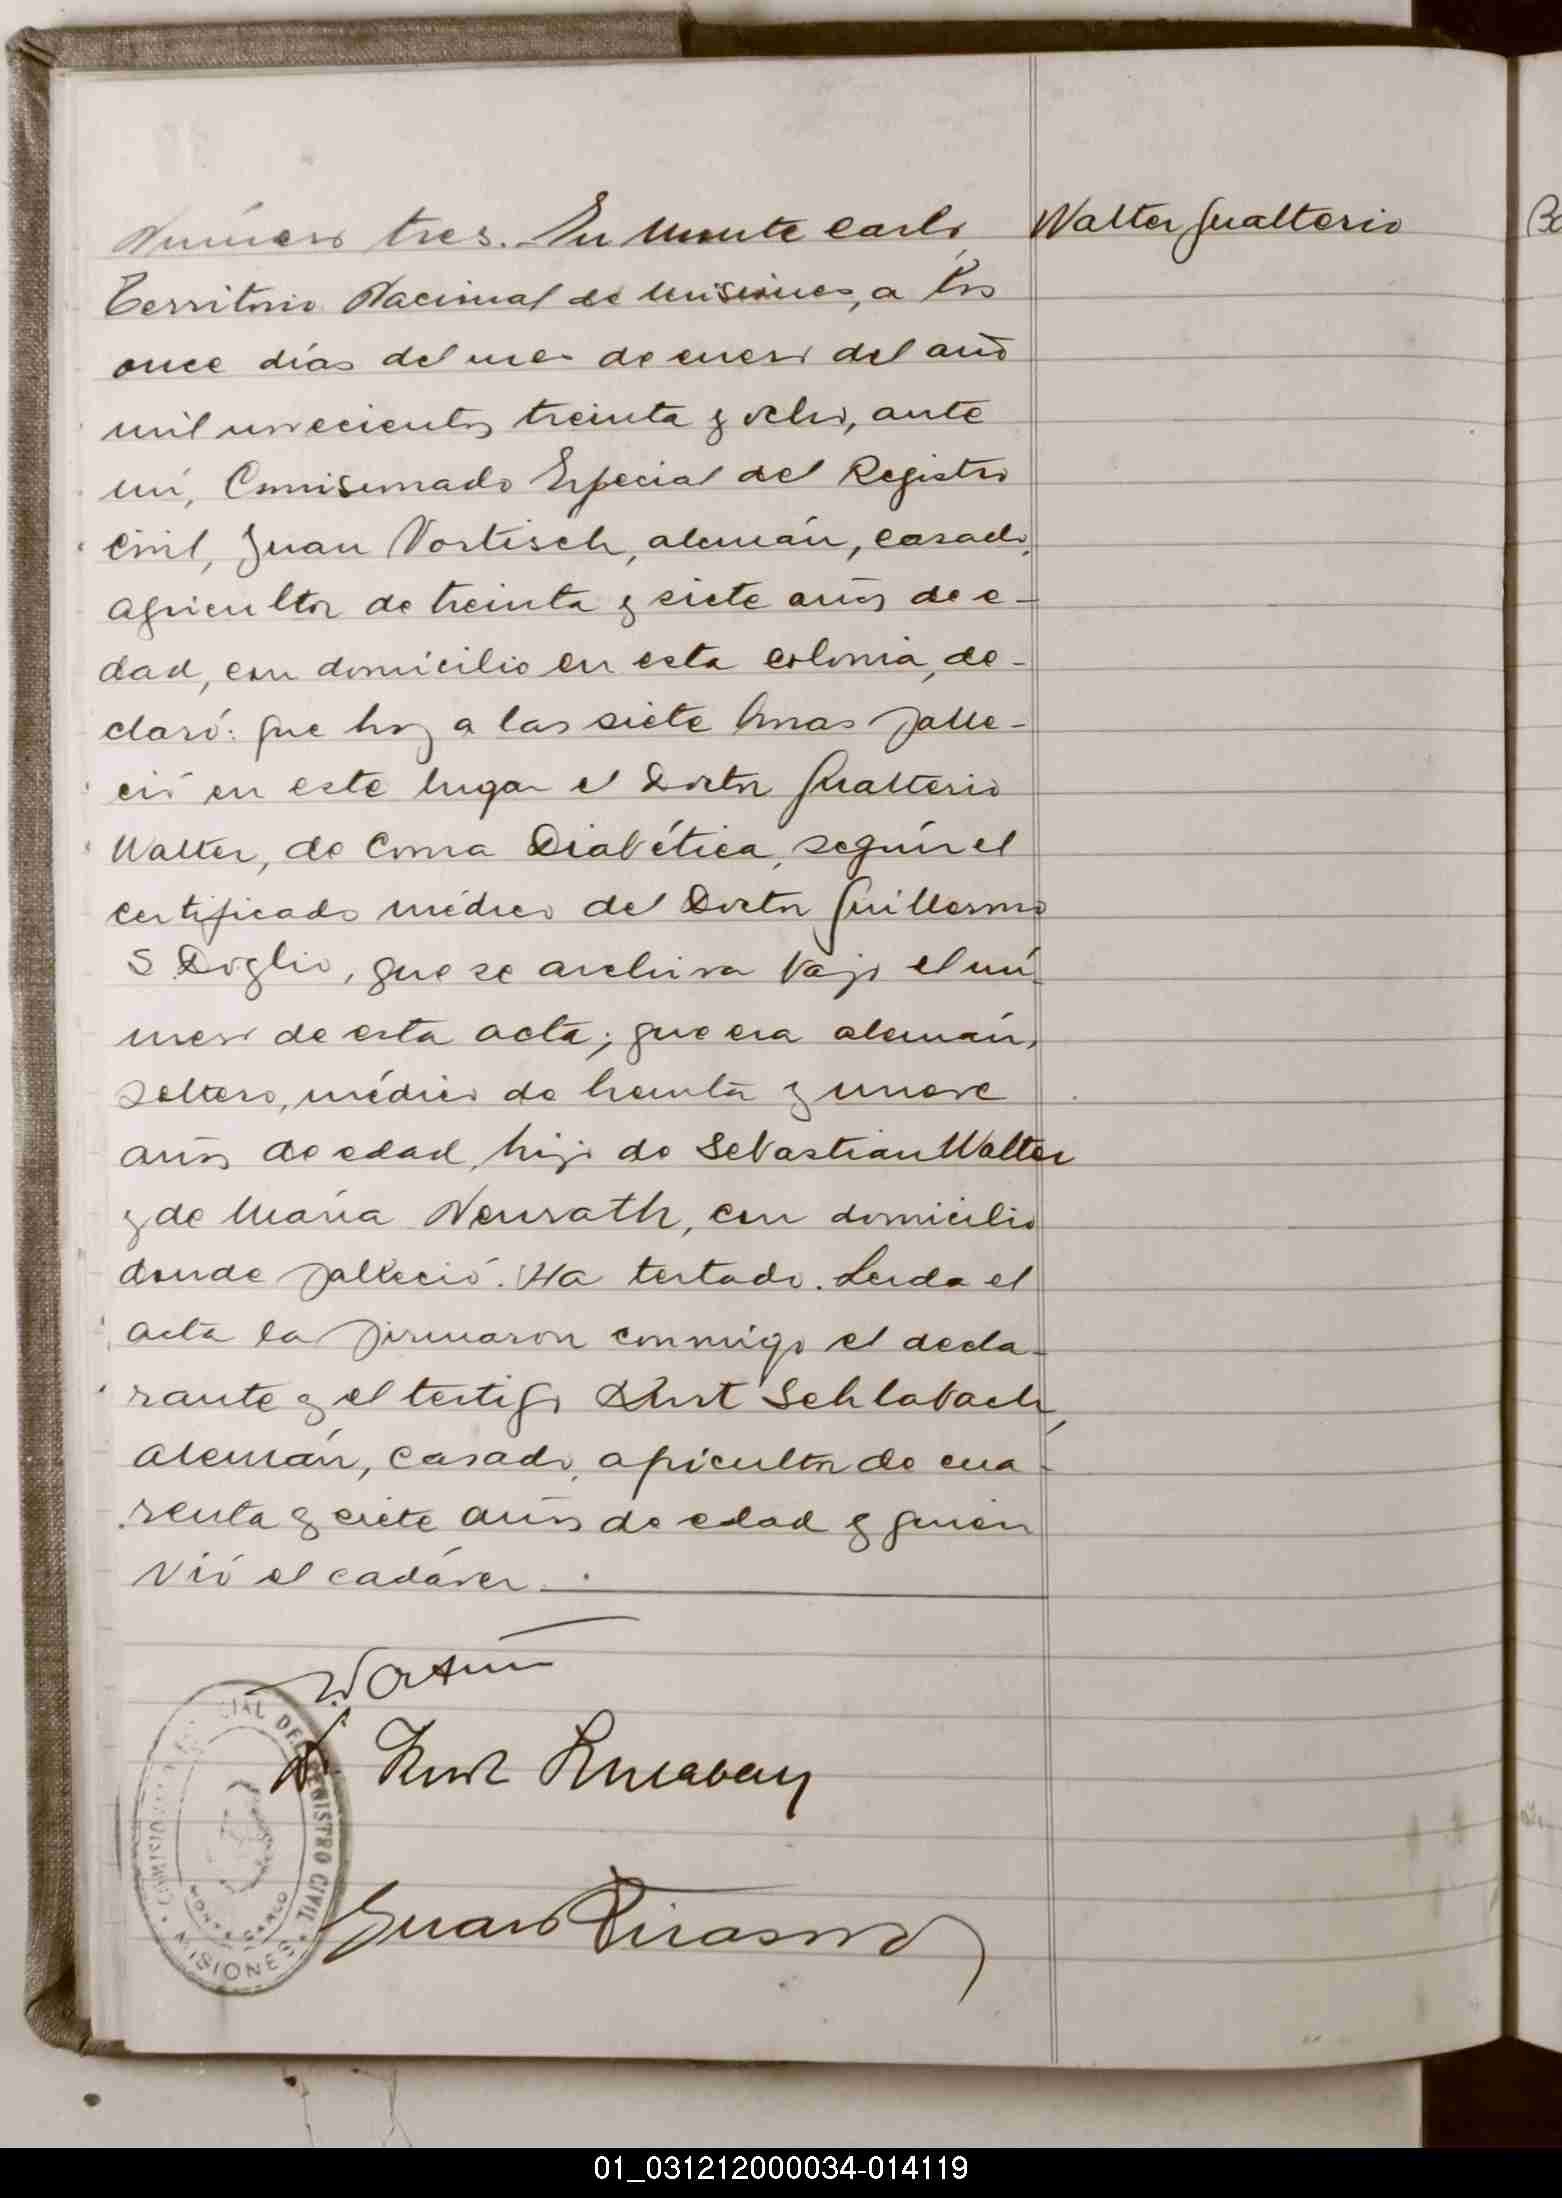 Número tres. En Monte Carlo,
Walter Gualterio
Territorio Nacional de Misiones, a los
once días del mes de enero del año
mil novecientos treinta y ocho, ante
mí, Comisionado Especial del Registro
Civil, Juan Vortisch, alemán, casado,
agricultor de treinta y siete años de e-
dad, con domicilio en esta colonia, de-
claró: que hoy a las siete horas falle-
ció en este lugar el Doctor Gualterio
Walter, de Coma Diabética, según el
certificado médico del Doctor Guillermo
S. Doglio, que se archiva bajo el nú-
mero de esta acta; que era alemán,
soltero, médico de treinta y nueve
años de edad, hijo de Sebastian Walter
y de María Neurath, con domicilio
donde falleció. Ha testado. Leída el
acta la firmaron conmigo el decla-
rante y el testigo Kurt Schlabach,
alemán, casado, apicultor de cua-
renta y siete años de edad y quien
vió el cadáver.
Kurt
Juan
COMISIONADO ESPECIAL DEL REGISTRO CIVIL
MONTE CARLO
MISIONES
01_031212000034-014119